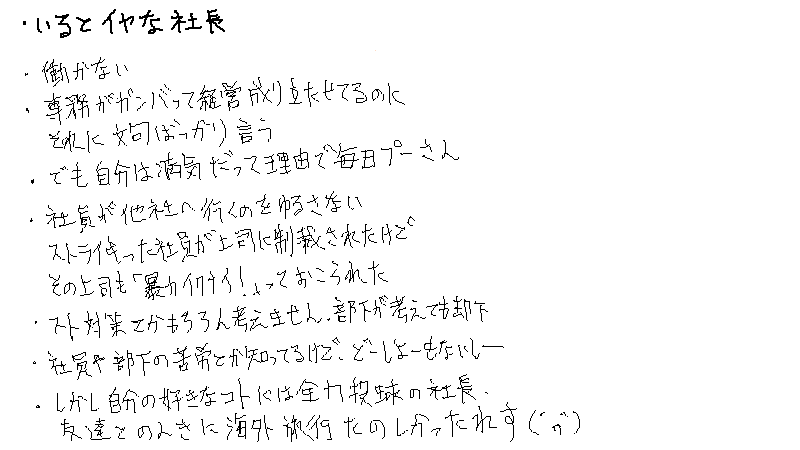 ・いるとイヤな社長
・働かない
・専務がガンバって経営成り立たせてるのに
それに文句ばっかり言う
・でも自分は病気だって理由で毎日プーさん
・社員が他社へ行くのをゆるさない
ストライキった社員が上司に制裁されたけど
その上司も「暴力イクナイ!」っておこられた
・スト対策とかもちろん考えません、部下が考えても却下
・社員や部下の苦労とか知ってるけど、どーしよーもないしー
・しかし自分の好きなコトには全力投球の社長、
友達とのんきに海外旅行たのしかったれす(´ภ`)